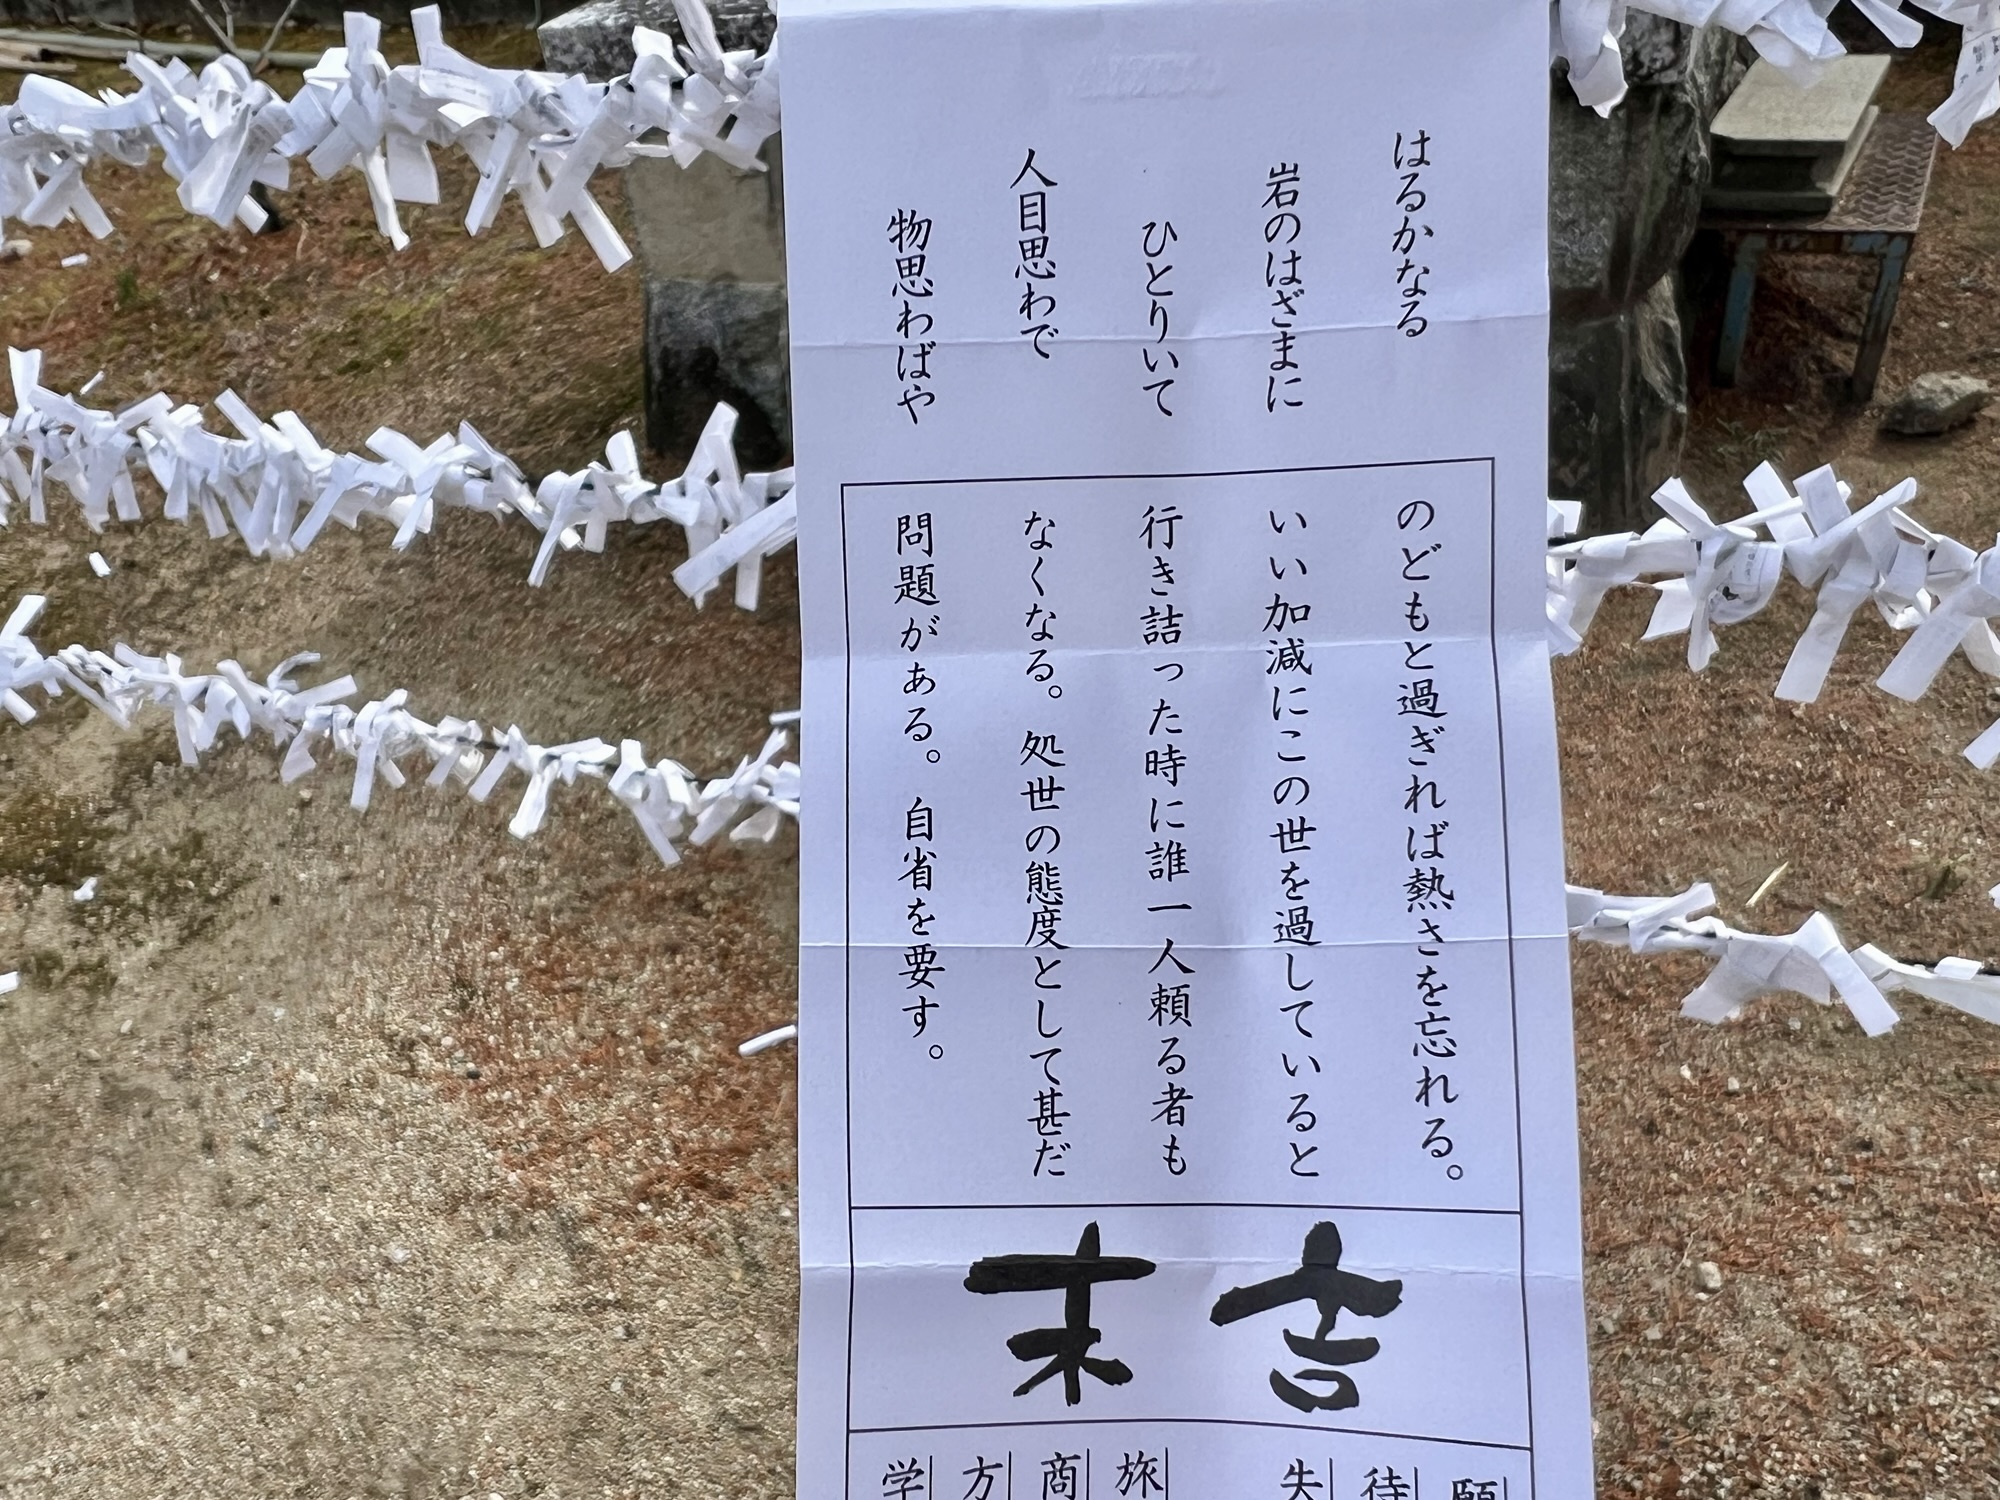 はるかなる
岩のはざまに
ひとりいて
人目思わで
物思わばや
のどもと過ぎれば熱さを忘れる。
いい加減にこの世を過していると
行き詰った時に誰一人頼る者も
なくなる。処世の態度として甚だ
問題がある。自省を要す。
吉末
願
待
失
旅
商
方
学